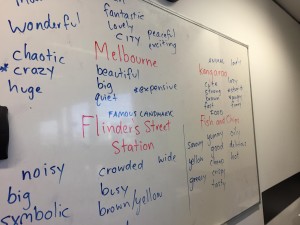 wonderful
chaotic
* crazy
huge
fantastic
lovely
CITY
peaceful
exciting
Melbourne
beautiful
big
quiet
* expensive
FAMOUS LANDMARK
Flinders Street
Station
noisy
big
symbolic
crowded wide
busy
brown/yellow
ANIMAL
kangaroo
cute
strong
brown
fast
FOOD
Fish and Chips
yummy
good
yellow
cheap
greasy
crispy
tasty
oily
delicious
hot